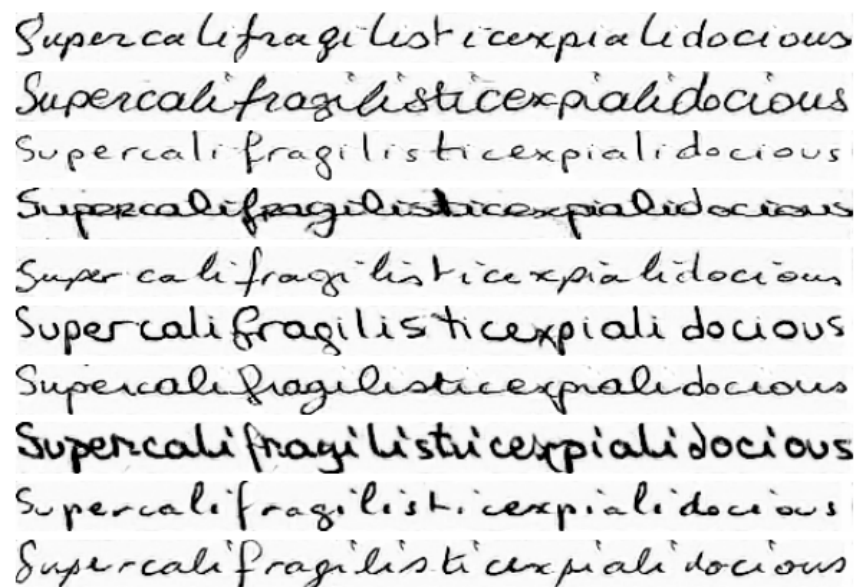 Supercalifragilisticexpialidocious
Supercalifragilisticexpialidocious
Supercalifragilisticexpialidocious
Supercalifragilisticexpialidocious
Supercalifragilisticexpialidocious
Supercalifragilisticexpialidocious
Supercalifragilisticexpialidocious
Supercalifragilisticexpialidocious
Supercalifragilisticexpialidocious
Supercalifragilisticexpialidocious